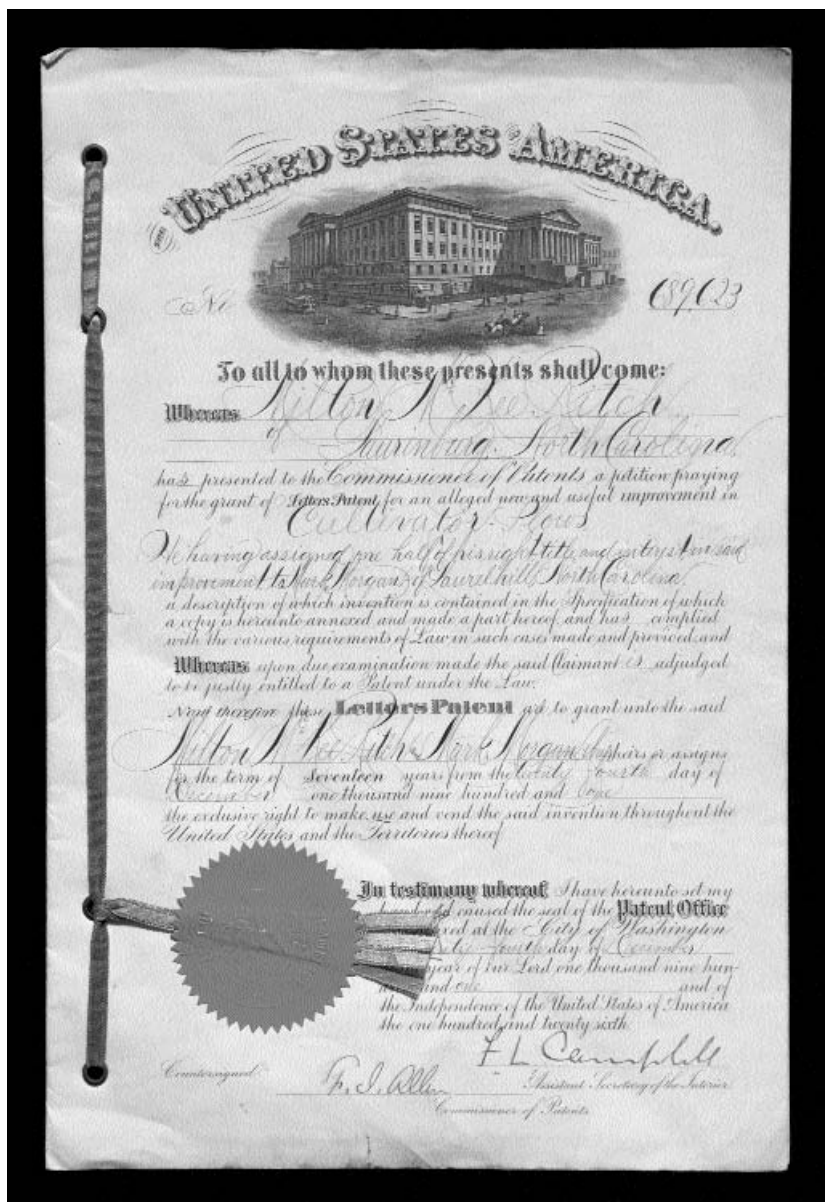 THE UNITED STATES OF AMERICA.
No 689,623
To all to whom these presents shall come:
Whereas Milton McDee Ritch
of Laurinburg, North Carolina
has presented to the Commissioner of Patents a petition praying
for the grant of Letters Patent for an alleged new and useful improvement in
Cultivator Plows
He having assigned one half of his right, title and interest in said
improvement to Mark Morgan, of Laurel hill, North Carolina,
a description of which invention is contained in the Specification of which
a copy is hereunto annexed and made a part hereof, and has complied
with the various requirements of Law in such cases made and provided, and
Whereas upon due examination made the said Claimant is adjudged
to be justly entitled to a Patent under the Law.
Now therefore these Letters Patent are to grant unto the said
Milton Ritch & Mark Morgan, heirs or assigns
for the term of Seventeen years from the twenty fourth day of
December one thousand nine hundred and one
the exclusive right to make, use and vend the said invention throughout the
United States and the Territories thereof.
In testimony whereof I have hereunto set my
caused the seal of the Patent Office
at the City of Washington
fourth day of December
year of our Lord one thousand nine hun-
and one and of
the Independence of the United States of America
the one hundred and twenty sixth.
F. L. Campbell
Countersigned F. I. Allen Assistant Secretary of the Interior
Commissioner of Patents